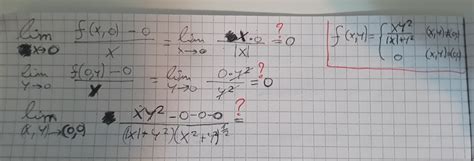 lim x→0 f(x,0)-0 / x = lim x→0 x·0 / |x| ?= 0
lim y→0 f(0,y)-0 / y = lim y→0 0·y² / y² ?= 0
lim (x,y)→(0,0) xy²-0-0-0 / (|x|+y²)(x²+y²)^½ ?=
f(x,y)= { xy² / |x|+y² (x,y)≠(0,0)
0 (x,y)=(0,0)